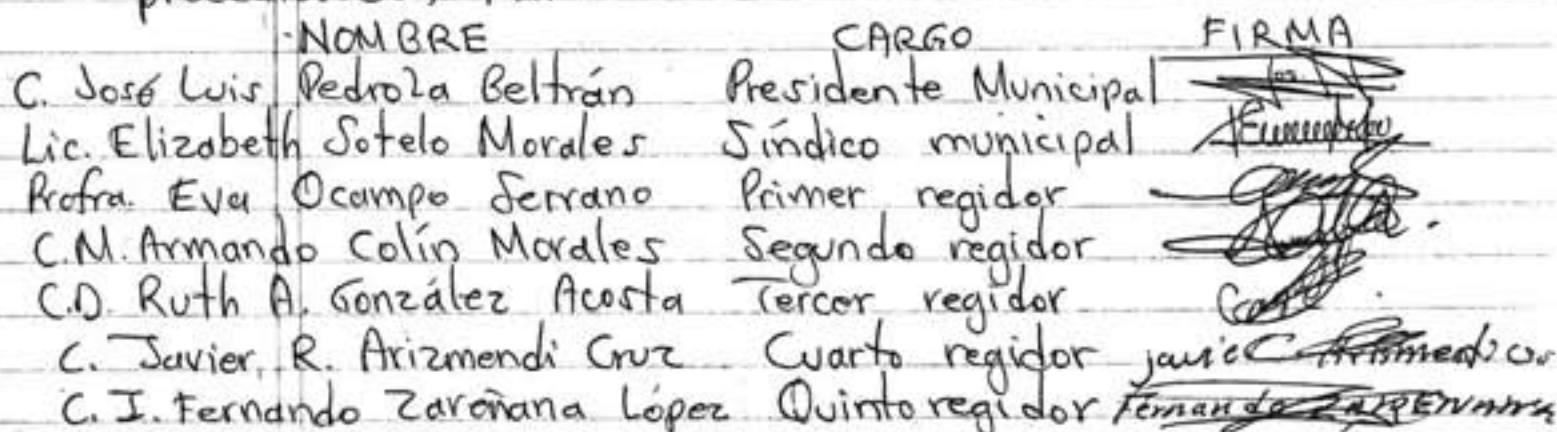 NOMBRE CARGO FIRMA
C. José Luis Pedroza Beltrán Presidente Municipal
Lic. Elizabeth Sotelo Morales Síndico municipal
Profra. Eva Ocampo Serrano Primer regidor
C.M. Armando Colín Morales Segundo regidor
C.D. Ruth A. González Acosta Tercer regidor
C. Javier R. Arizmendi Cruz Cuarto regidor
C. I. Fernando López Quinto regidor Fernando